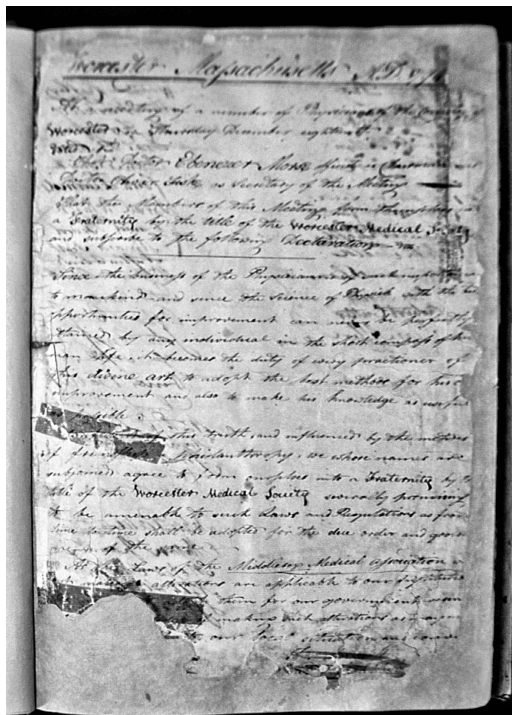 Worcester Massachusetts A.D. 179
At a meeting of a number of Physicians of the County of
Worcester on Thursday December eighteenth
Voted
That Doctor Ebenezer Morse officiate as Chairman and
Doctor Oliver Fisk as Secretary of the Meeting
That the Members of this Meeting form themselves in
a Fraternity by the title of the Worcester Medical Society
and subscribe to the following Declaration
Since the business of the Physician is of such importance
to mankind and since the Science of Physick with the best
opportunities for improvement can never be perfectly
attained by any individual in the short compass of hu
man life it becomes the duty of every practioner of
this divine art to adopt the best methods for his
improvement and also to make his knowledge as useful
as possible
this truth, and influenced by the motives
of philanthropy, we whose names are
subjoined agree to form ourselves into a Fraternity by the
title of the Worcester Medical Society severally promising
to be amenable to such Laws and Regulations as from
time to time shall be adopted for the due order and gover
of the same
As the Laws of the Middlesex Medical Association
alterations are applicable to our
them for our government
making such alterations as
our local situation and